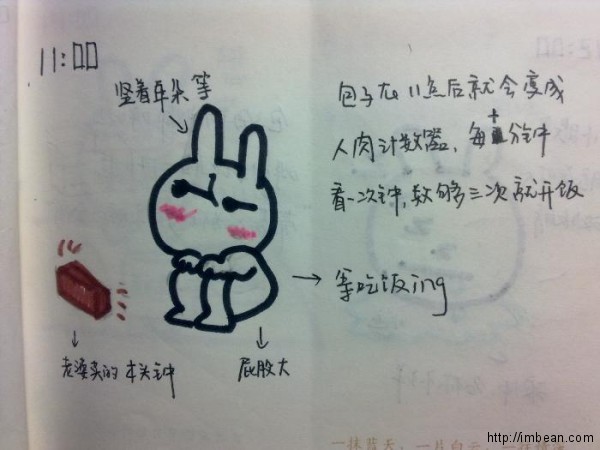 11:00
竖着耳朵等
包子在11点后就会变成
人肉计数器,每十分钟
看一次钟,数够三次就开饭
等吃饭ing
老婆买的木头钟
屁股大
一抹蓝天、一片白云、一
http://imbean.com